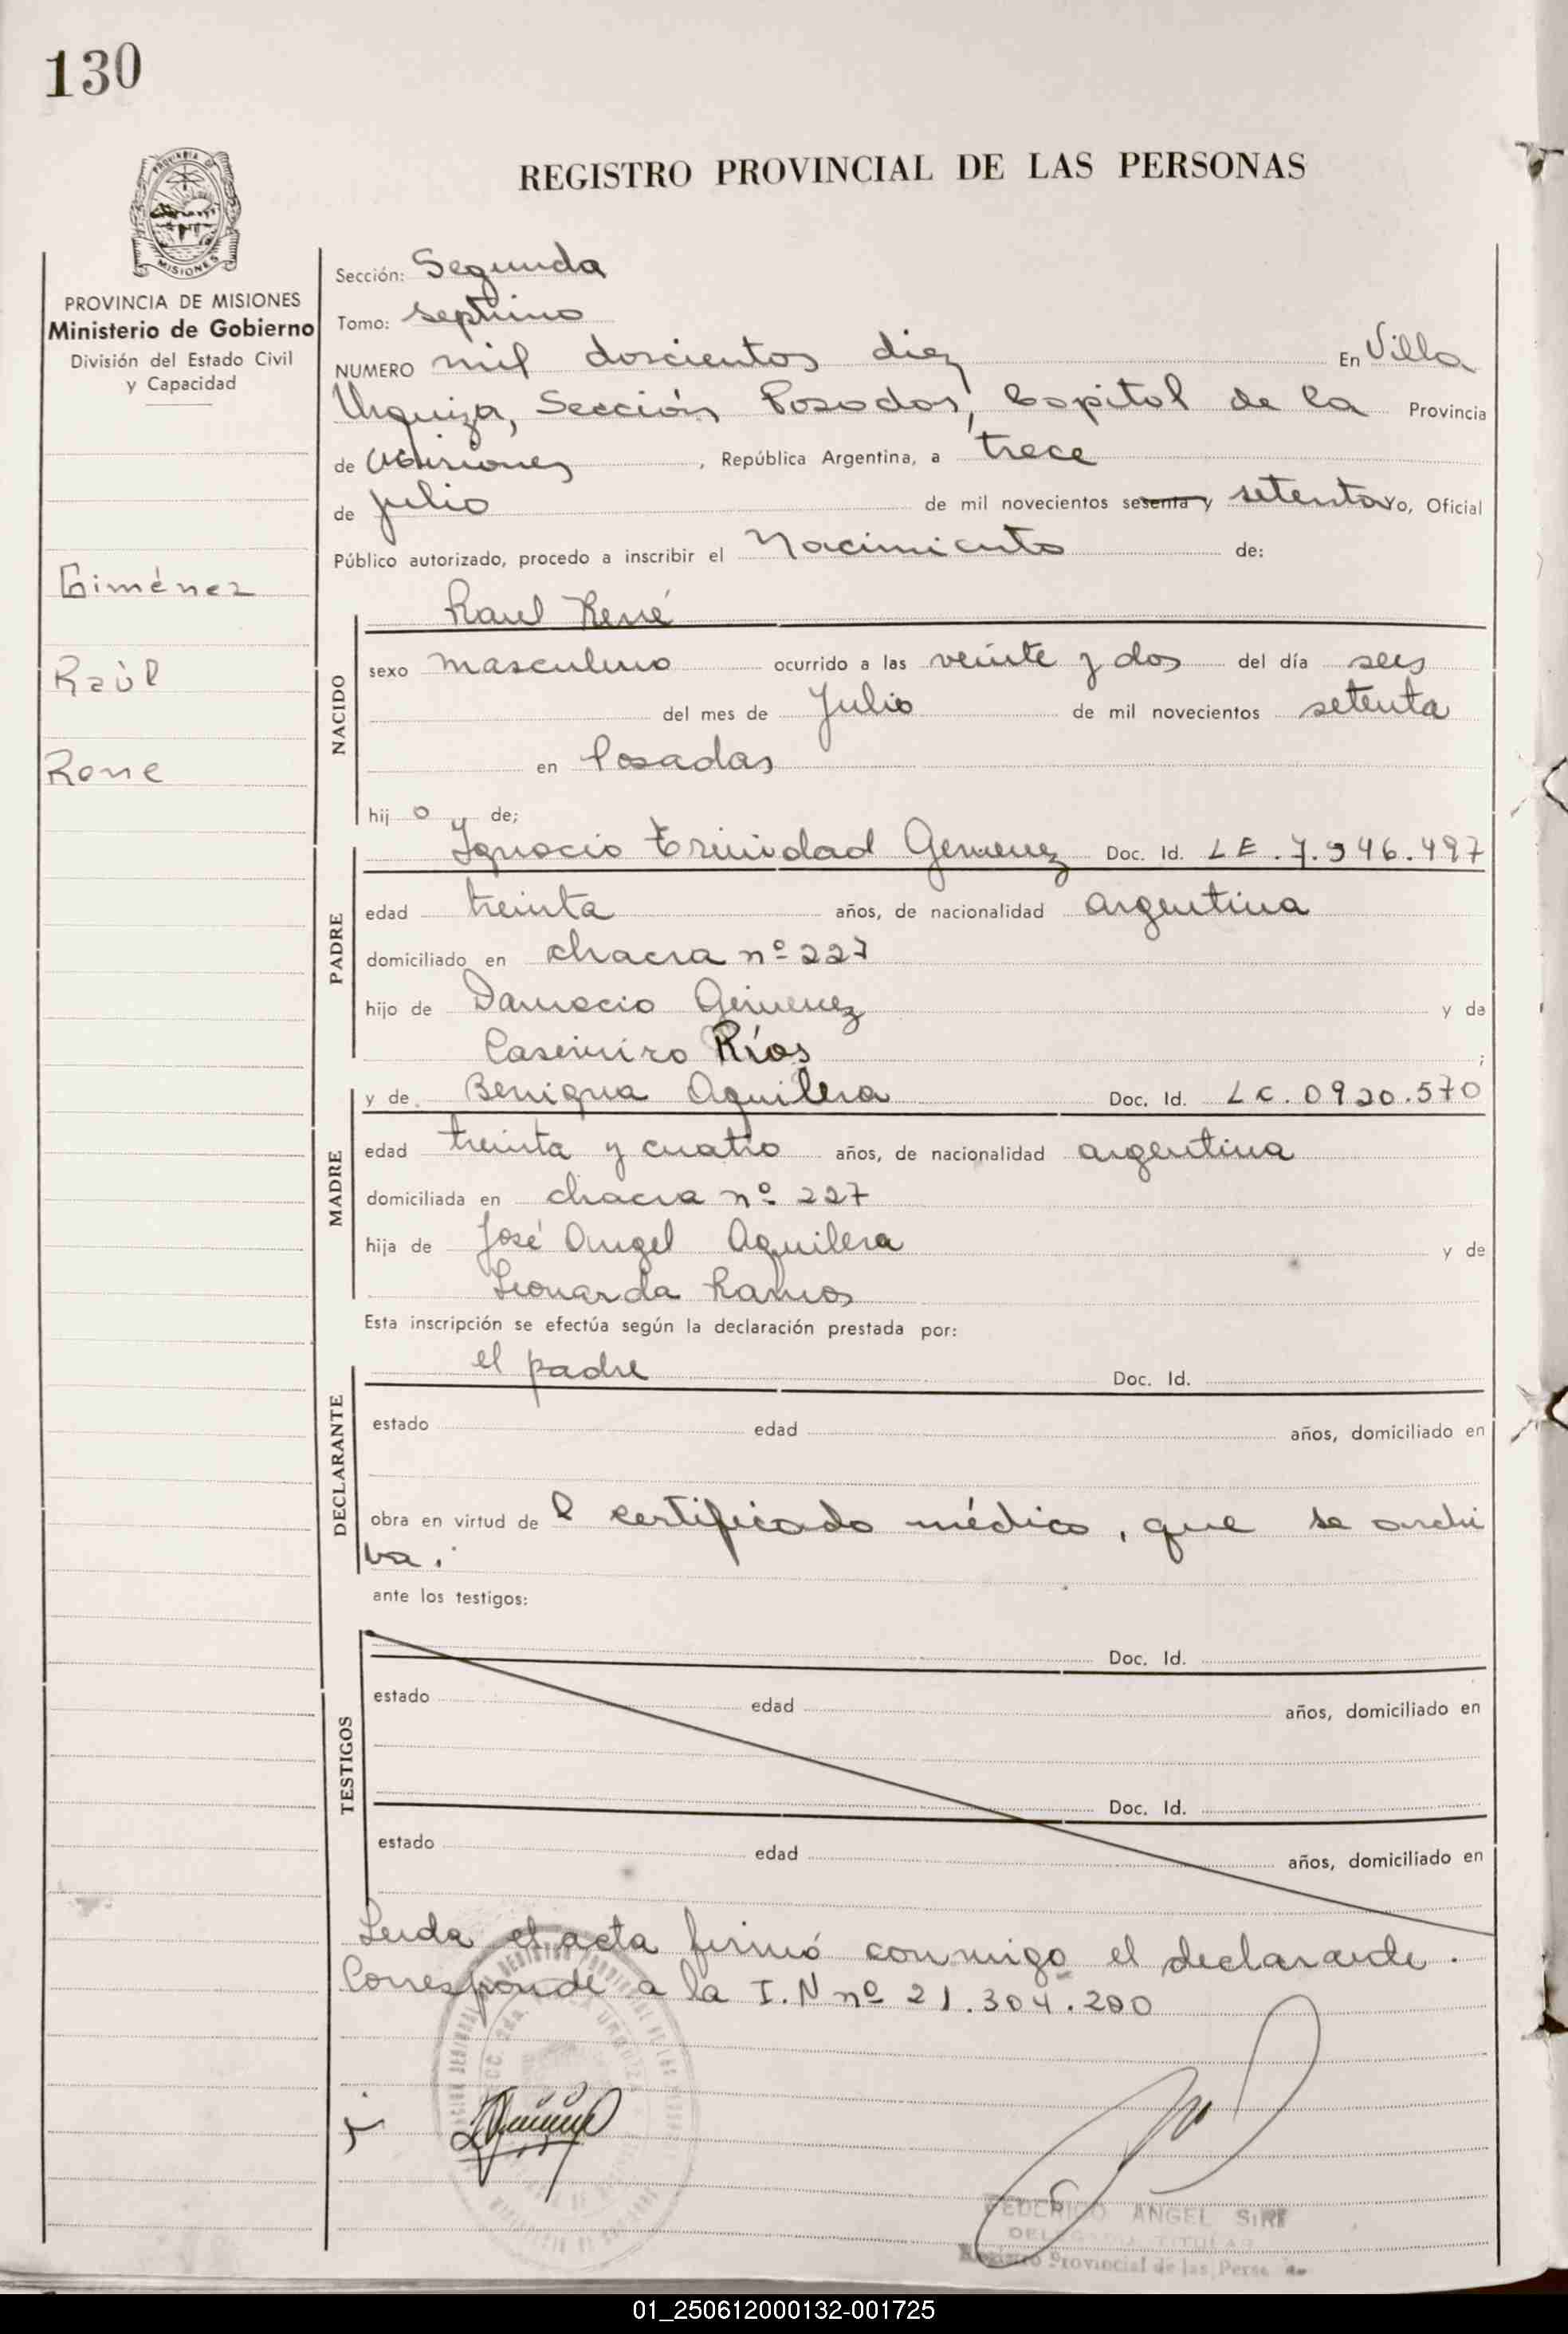 130
REGISTRO PROVINCIAL DE LAS PERSONAS
PROVINCIA DE MISIONES
PROVINCIA DE MISIONES
Ministerio de Gobierno
División del Estado Civil
y Capacidad
Giménez
Raúl
Rene
Sección: Segunda
Tomo: septimo
NUMERO mil doscientos diez En Villa
Urquiza, Sección Posadas, Capital de la Provincia
de Misiones, República Argentina, a trece
de julio de mil novecientos sesenta y setenta Yo, Oficial
Público autorizado, procedo a inscribir el Nacimiento de:
NACIDO
Raul René
sexo masculino ocurrido a las veinte y dos del día seis
del mes de Julio de mil novecientos setenta
en Posadas
hij o de;
PADRE
Ignacio Trinidad Gimenez Doc. Id. LE. 7.946.497
edad treinta años, de nacionalidad argentina
domiciliado en chacra nº 227
hijo de Damacio Gimenez y de
Casimira Ríos ;
MADRE
y de Benigna Aguilera Doc. Id. LC. 0920.570
edad treinta y cuatro años, de nacionalidad argentina
domiciliada en chacra nº 227
hija de José Angel Aguilera y de
Leonarda Ramos
Esta inscripción se efectúa según la declaración prestada por:
DECLARANTE
el padre Doc. Id.
estado edad años, domiciliado en
obra en virtud de l certificado médico, que se archi
va.
ante los testigos:
TESTIGOS
Doc. Id.
estado edad años, domiciliado en
Doc. Id.
estado edad años, domiciliado en
Leida el acta firmó conmigo el declarante.
Corresponde a la I.N nº 21.304.200
FEDERICO ANGEL SIRI
DELEGADO TITULAR
Registro Provincial de las Personas
01_250612000132-001725